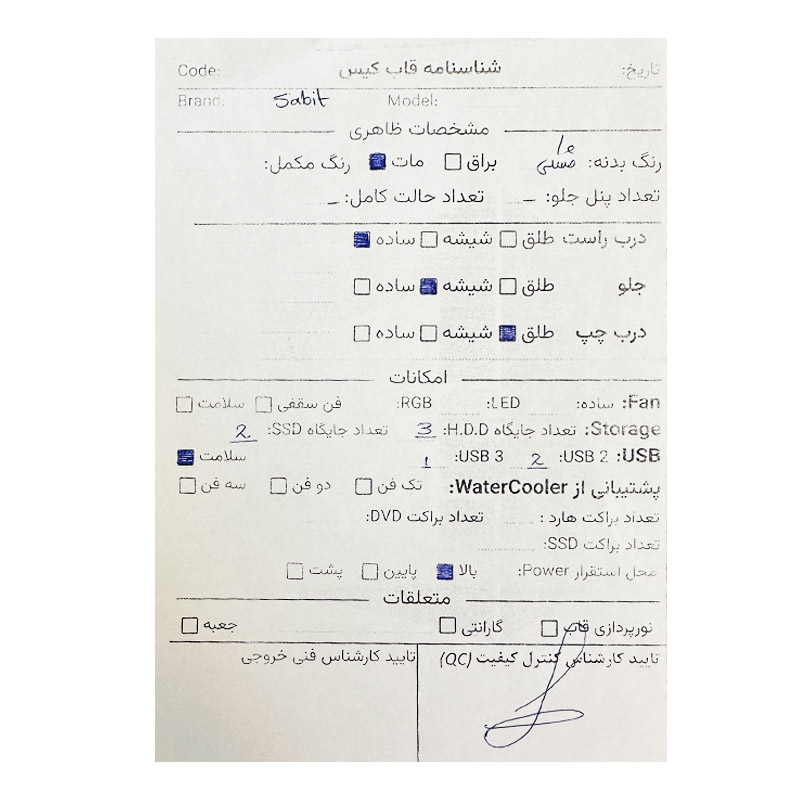 شناسنامه قاب کیس
تاریخ: Code:
Brand: Sabit Model:
مشخصات ظاهری
رنگ بدنه: مشکی براق مات رنگ مکمل:
تعداد پنل جلو: _ تعداد حالت کامل: _
درب راست طلق شیشه ساده
جلو طلق شیشه ساده
درب چپ طلق شیشه ساده
امکانات
Fan: ساده: LED: RGB: فن سقفی سلامت
Storage: تعداد جایگاه H.D.D: 3 تعداد جایگاه SSD: 2
USB: USB 2: 2 USB 3: 1 سلامت
پشتیبانی از WaterCooler: تک فن دو فن سه فن
تعداد براکت هارد : تعداد براکت DVD:
تعداد براکت SSD:
محل استقرار Power: بالا پایین پشت
متعلقات
نورپردازی قاب گارانتی جعبه
تایید کارشناس کنترل کیفیت (QC) تایید کارشناس فنی خروجی